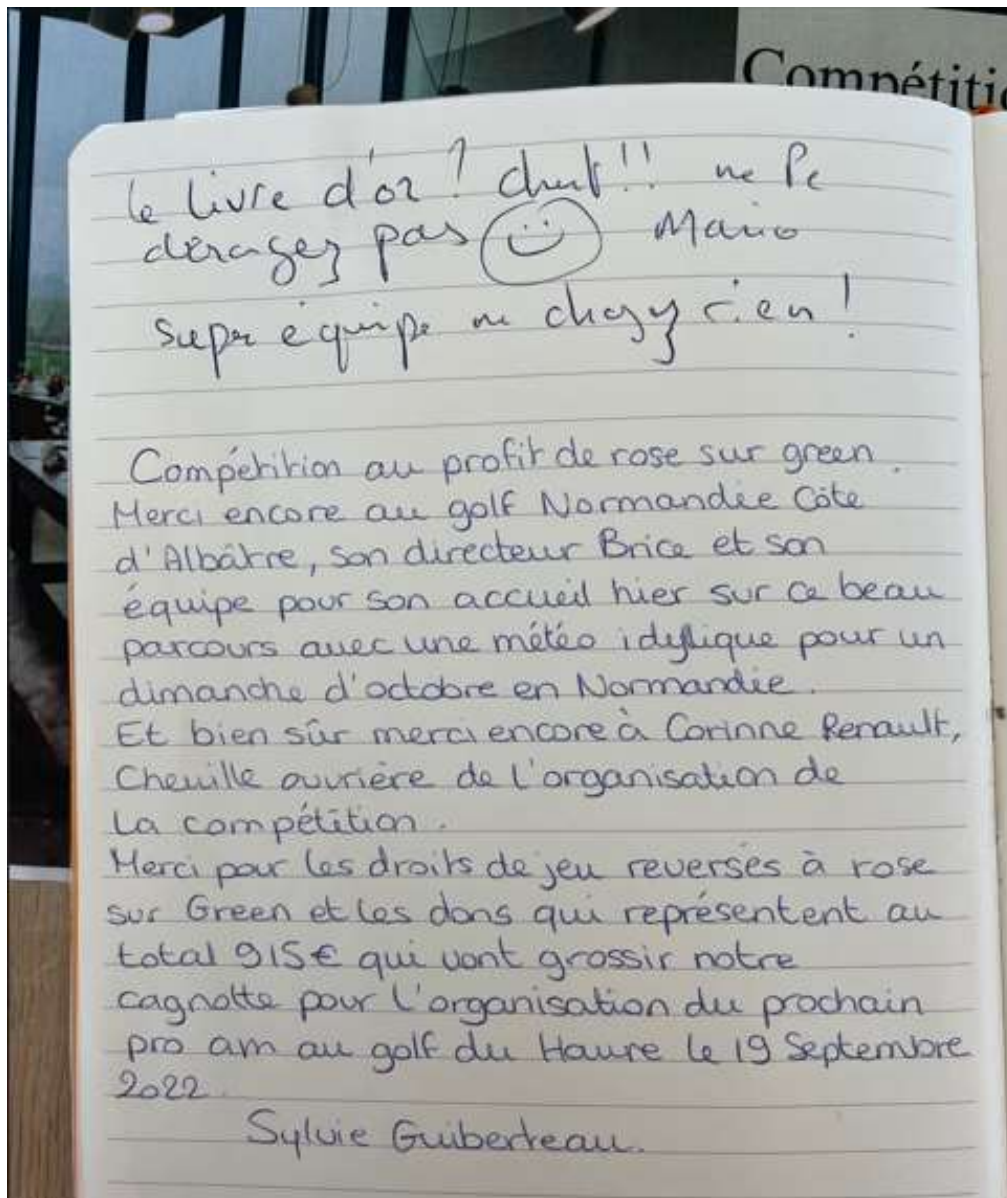 Compétitio
le livre d'or ! chut !! ne le
dérangez pas Mario
super équipe ne changez rien !
Compétition au profit de rose sur green.
Merci encore au golf Normandie Côte
d'Albâtre, son directeur Brice et son
équipe pour son accueil hier sur ce beau
parcours avec une météo idyllique pour un
dimanche d'octobre en Normandie.
Et bien sûr merci encore à Corinne Renault,
Cheville ouvrière de l'organisation de
La compétition.
Merci pour les droits de jeu reversés à rose
sur Green et les dons qui représentent au
total 915€ qui vont grossir notre
cagnotte pour l'organisation du prochain
pro am au golf du Havre le 19 Septembre
2022.
Sylvie Guiberteau.